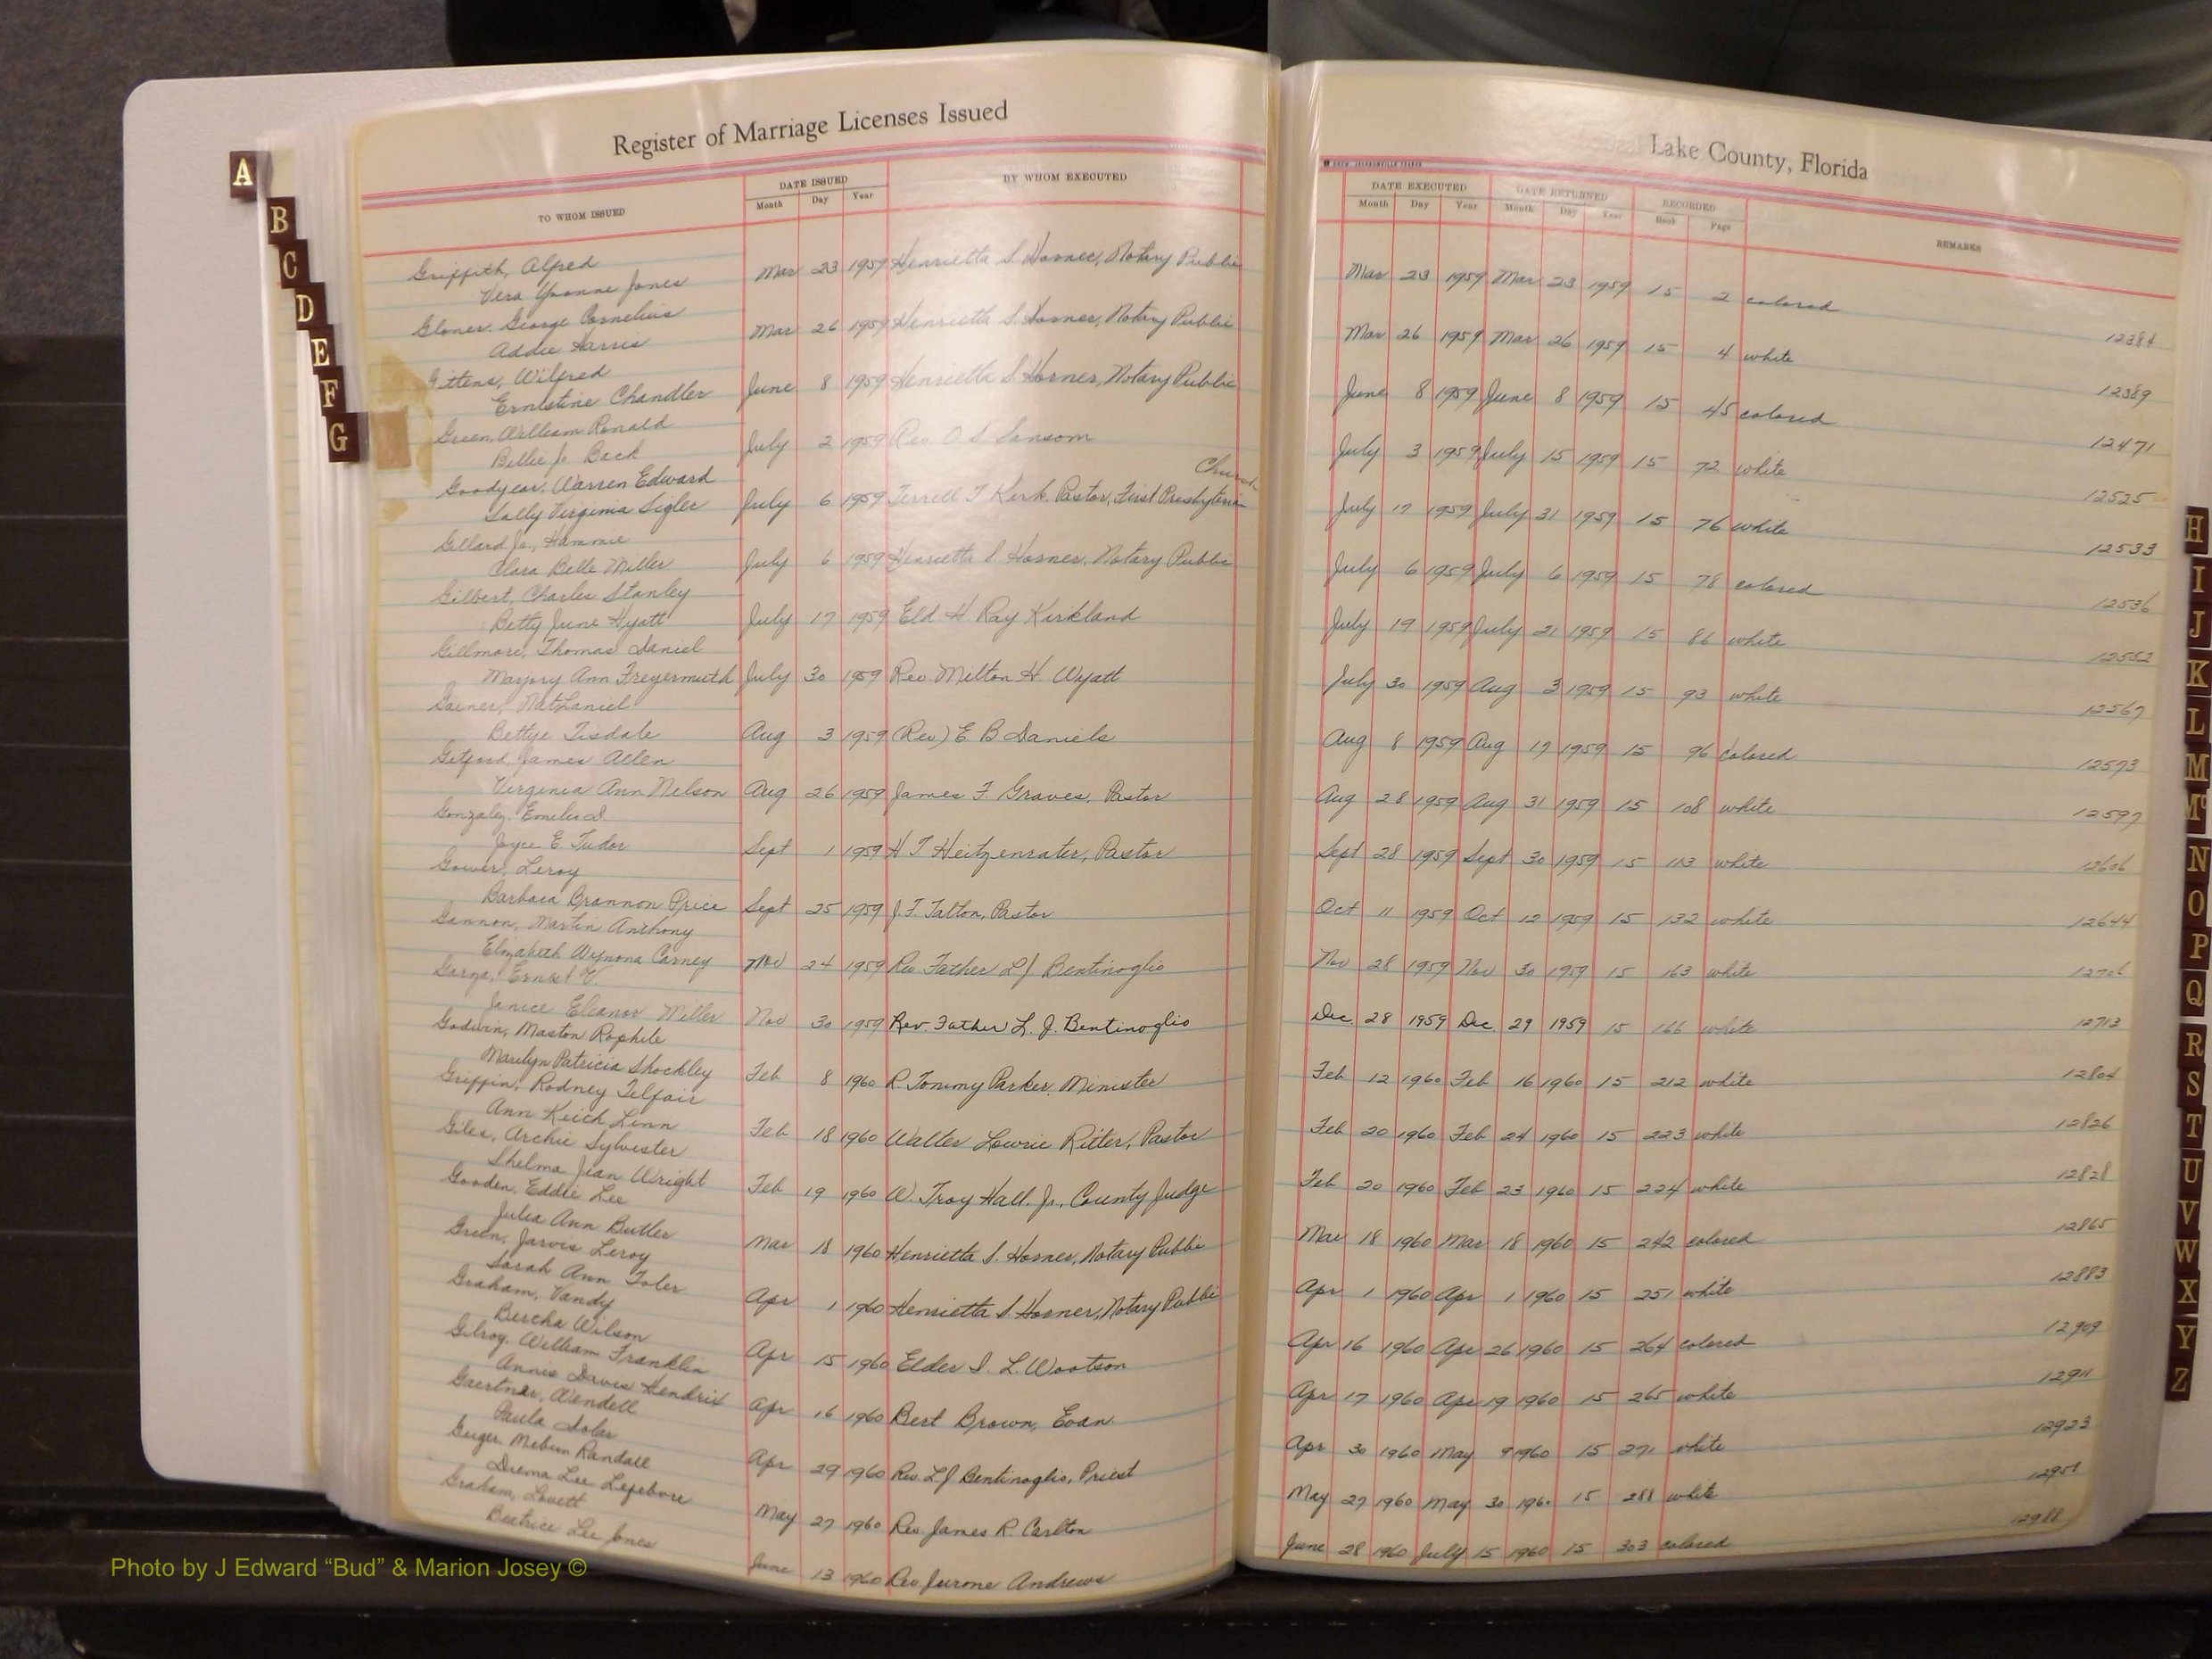 Register of Marriage Licenses Issued
Lake County, Florida
TO WHOM ISSUED
DATE ISSUED
Month Day Year
BY WHOM EXECUTED
DATE EXECUTED
Month Day Year
DATE RETURNED
Month Day Year
RECORDED
Book Page
REMARKS
Griffith, Alfred
Vera Yvonne Jones
Mar 23 1959 Henrietta S. Horner, Notary Public Mar 23 1959 Mar 23 1959 15 2 colored
12384
George Cornelius
Addie Harris
Mar 26 1959 Henrietta S. Horner, Notary Public Mar 26 1959 Mar 26 1959 15 4 white
12389
Gittens, Wilfred
Ernestine Chandler
June 8 1959 Henrietta S Horner, Notary Public June 8 1959 June 8 1959 15 45 colored
12471
Green, William Ronald
Billie Jo Back
July 2 1959 Rev. O S. Sansom July 3 1959 July 15 1959 15 72 white
12525
Goodyear, Warren Edward
Sally Virginia Sigler
July 6 1959 Terrell T Kirk, Pastor, First Presbyterian Church July 17 1959 July 31 1959 15 76 white
12533
Gillard Jr., Hammie
Clara Belle Miller
July 6 1959 Henrietta S Horner, Notary Public July 6 1959 July 6 1959 15 78 colored
12536
Gilbert, Charles Stanley
Betty June Hyatt
July 17 1959 Eld H Ray Kirkland July 19 1959 July 21 1959 15 86 white
12552
Gillmore, Thomas Daniel
Marjory Ann Freyermuth
July 30 1959 Rev. Milton H. Wyatt July 30 1959 Aug 3 1959 15 93 white
12567
Nathaniel
Bettye Tisdale
Aug 3 1959 (Rev) E B Daniels Aug 8 1959 Aug 17 1959 15 96 colored
12573
James Allen
Virginia Ann Nelson
Aug 26 1959 James F. Graves, Pastor Aug 28 1959 Aug 31 1959 15 108 white
12597
Gonzalez, Emilio D.
Joyce E. Tudor
Sept 1 1959 H T Heitzenrater, Pastor Sept 28 1959 Sept 30 1959 15 113 white
12606
Gower, Leroy
Barbara Brannon Price
Sept 25 1959 J. T. Talton, Pastor Oct 11 1959 Oct 12 1959 15 132 white
12644
Gannon, Martin Anthony
Elizabeth Wynona Carney
Nov 24 1959 Rev Father L J Bentinoglio Nov 28 1959 Nov 30 1959 15 163 white
12706
Garza, Ernest V.
Janice Eleanor Miller
Nov 30 1959 Rev. Father L. J. Bentinoglio Dec. 28 1959 Dec. 29 1959 15 166 white
12713
Godwin, Maston Rophile
Marilyn Patricia Shockley
Feb 8 1960 R. Tommy Parker, Minister Feb 12 1960 Feb 16 1960 15 212 white
12804
Griffin, Rodney Telfair
Ann Keith Linn
Feb 18 1960 Walter Lowrie Ritter, Pastor Feb 20 1960 Feb 24 1960 15 223 white
12826
Giles, Archie Sylvester
Shelma Jean Wright
Feb 19 1960 W. Troy Hall, Jr., County Judge Feb 20 1960 Feb 23 1960 15 224 white
12828
Gooden, Eddie Lee
Julia Ann Butler
Mar 18 1960 Henrietta S. Horner, Notary Public Mar 18 1960 Mar 18 1960 15 242 colored
12865
Green, Jarvis Leroy
Sarah Ann Toler
Apr 1 1960 Henrietta S Horner, Notary Public Apr 1 1960 Apr 1 1960 15 251 white
12883
Graham, Vandy
Bercha Wilson
Apr 15 1960 Elder S. L. Wootson Apr 16 1960 Apr 26 1960 15 264 colored
12909
Gilroy, William Franklin
Annie Davis Hendrix
Apr 16 1960 Bert Brown, Evan. Apr 17 1960 Apr 19 1960 15 265 white
12911
Gaertner, Wendell
Paula Solar
Apr 29 1960 Rev. L J Bentinoglio, Priest Apr 30 1960 May 9 1960 15 271 white
12923
Geiger, Mebun Randall
Drema Lee Lefebvre
May 27 1960 Rev. James R. Carlton May 27 1960 May 30 1960 15 288 white
12958
Graham, Lovett
Beatrice Lee Jones
June 13 1960 Rev Jurone Andrews June 28 1960 July 15 1960 15 303 colored
12988
A
B
C
D
E
F
G
H
I
J
K
L
M
Mc
N
O
P
Q
R
S
T
U
V
W
X
Y
Z
Photo by J Edward “Bud” & Marion Josey ©